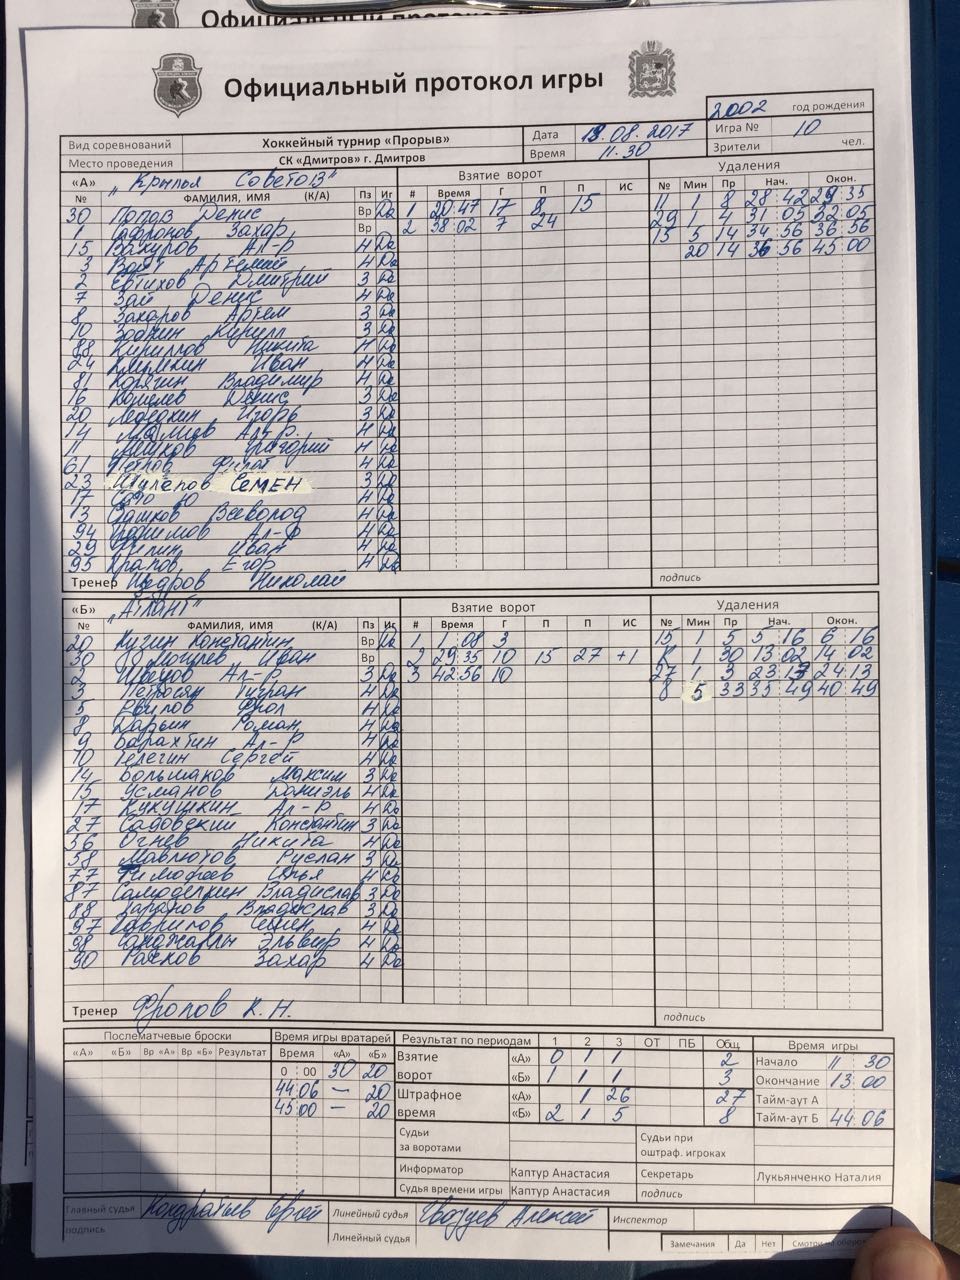 Официальный протокол игры
2002 год рождения
Вид соревнований Хоккейный турнир «Прорыв» Дата 18.08.2017 Игра № 10
Место проведения СК «Дмитров» г. Дмитров Время 11.30 Зрители чел.
«А» „Крылья Советов" Взятие ворот Удаления
№ ФАМИЛИЯ, ИМЯ (К/А) Пз Иг # Время Г П П ИС № Мин Пр Нач. Окон.
30 Попов Денис Вр Да 1 20 47 17 8 15 11 1 8 28 42 29 35
1 Сафронов Захар Вр 2 38 02 7 24 29 1 4 31 05 32 05
15 Вакуров Ал-р Н Да 15 5 14 34 56 36 56
3 Артемий Н Да 20 14 36 56 45 00
2 Евтихов Дмитрий З Да
7 Зай Денис Н Да
8 Захаров Артем З Да
10 Кирилл З Да
88 Кириллов Никита Н Да
24 Иван Н Да
81 Корягин Владимир Н Да
16 Денис З Да
20 Игорь З Да
14 Ал-р. Н Да
11 Григорий Н Да
61 Петров Н Да
23 Шулепов СЕМЕН З Да
17 Н Да
13 Сашков Всеволод Н Да
94 Ал-р Н Да
29 Филин Иван Н Да
95 Храпов Егор Н Да
Тренер Щедров Николай подпись
«Б» „Атлант" Взятие ворот Удаления
№ ФАМИЛИЯ, ИМЯ (К/А) Пз Иг # Время Г П П ИС № Мин Пр Нач. Окон.
20 Кугин Константин Вр Да 1 1 08 3 15 1 5 5 16 6 16
30 Иван Вр 2 29 35 10 15 27 +1 К 1 30 13 02 14 02
2 Швецов Ал-р З Да 3 42 56 10 27 1 3 23 13 24 13
3 Петросян Тигран Н Да 8 5 33 35 49 40 49
5 Н Да
8 Дарьин Роман Н Да
9 Барахтин Ал-р Н Да
10 Телегин Сергей Н Да
14 Большаков Максим З Да
15 Усманов Даниэль Н Да
17 Кукушкин Ал-р Н Да
27 Садовский Константин З Да
56 Огнев Никита Н Да
58 Мавлютов Руслан З Да
77 Тимофеев Илья Н Да
87 Самоделкин Владислав З Да
88 Таранов Владислав З Да
97 Гаврилов Семен Н Да
98 Эльвир Н Да
90 Рачков Захар Н Да
Тренер Фролов К. Н. подпись
Послематчевые броски Время игры вратарей Результат по периодам 1 2 3 ОТ ПБ Общ. Время игры
«А» «Б» Вр «А» Вр «Б» Результат Время «А» «Б» Взятие ворот «А» 0 1 1 2 Начало 11 30
0 00 30 20 «Б» 1 1 1 3 Окончание 13 00
44 06 — 20 Штрафное время «А» 1 26 27 Тайм-аут А
45 00 — 20 «Б» 2 1 5 8 Тайм-аут Б 44.06
Судьи за воротами Судьи при оштраф. игроках
Информатор Каптур Анастасия Секретарь Лукьянченко Наталия
Судья времени игры Каптур Анастасия подпись
Главный судья Кондратьев Сергей Линейный судья Гвоздев Алексей Инспектор
подпись Линейный судья Замечания Да Нет Смотри на обороте